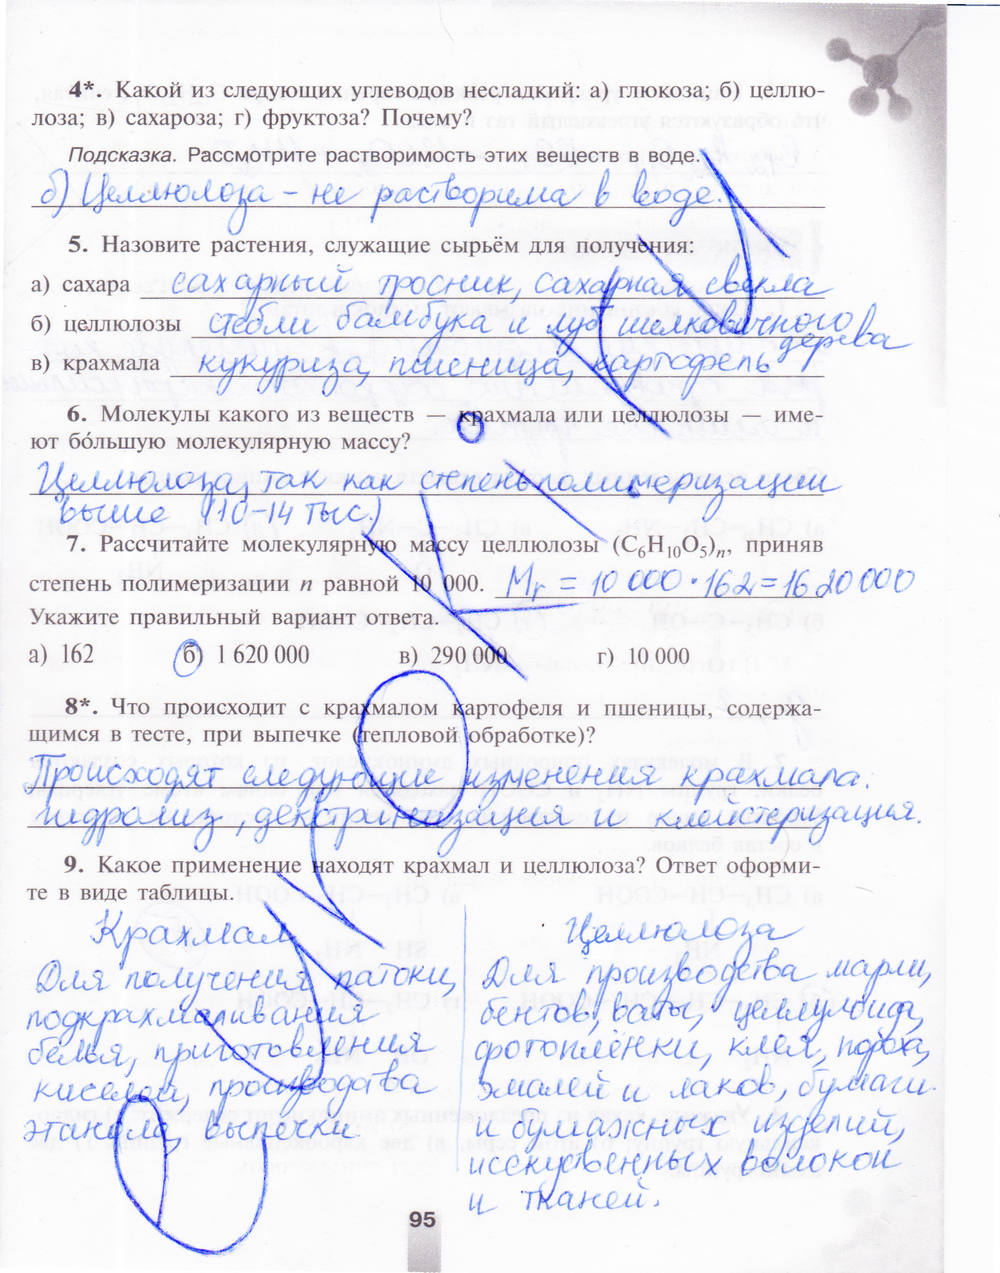 4*. Какой из следующих углеводов несладкий: а) глюкоза; б) целлю-
лоза; в) сахароза; г) фруктоза? Почему?
Подсказка. Рассмотрите растворимость этих веществ в воде.
б) Целлюлоза - не растворима в воде.
5. Назовите растения, служащие сырьём для получения:
а) сахара сахарный тросник, сахарная свекла
б) целлюлозы стебли бамбука и луб шелковичного
дерева
в) крахмала кукуриза, пшеница, картофель
6. Молекулы какого из веществ — крахмала или целлюлозы — име-
ют бо́льшую молекулярную массу?
Целлюлоза, так как степень полимеризации
выше (10-14 тыс.)
7. Рассчитайте молекулярную массу целлюлозы (C₆H₁₀O₅)ₙ, приняв
степень полимеризации n равной 10 000. Mr = 10 000 · 162 = 1620 000
Укажите правильный вариант ответа.
а) 162 б) 1 620 000 в) 290 000 г) 10 000
8*. Что происходит с крахмалом картофеля и пшеницы, содержа-
щимся в тесте, при выпечке (тепловой обработке)?
Происходят следующие изменения крахмала:
гидролиз, декстринизация и клейстеризация.
9. Какое применение находят крахмал и целлюлоза? Ответ оформи-
те в виде таблицы.
Крахмал
Для получения патоки,
подкрахмаливания
белья, приготовления
киселей, производства
этанола, выпечки.
Целлюлоза
Для производства марли,
бентов, ваты, целлулоида,
фотоплёнки, клея, пороха,
эмалей и лаков, бумаги
и бумажных изделий,
исскуственных волокон
и тканей.
95